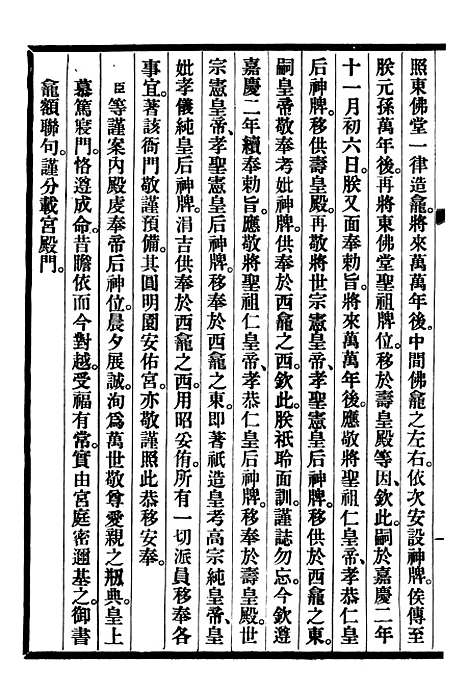 照東佛堂一律造龕。將來萬萬年後。中間佛龕之左右。依次安設神牌。俟傳至
朕元孫萬年後。再將東佛堂聖祖牌位。移於壽皇殿等因。欽此。嗣於嘉慶二年
十一月初六日。朕又面奉勅旨。將來萬萬年後。應敬將聖祖仁皇帝、孝恭仁皇
后神牌。移供壽皇殿。再敬將世宗憲皇帝、孝聖憲皇后神牌。移供於西龕之東。
嗣皇帝敬奉考妣神牌。供奉於西龕之西。欽此。朕祇聆面訓。謹誌勿忘。今欽遵
嘉慶二年續奉勅旨。應敬將聖祖仁皇帝、孝恭仁皇后神牌。移奉於壽皇殿。世
宗憲皇帝、孝聖憲皇后神牌。移奉於西龕之東。即著祇造皇考高宗純皇帝、皇
妣孝儀純皇后神牌。涓吉供奉於西龕之西。用昭妥侑。所有一切派員移奉各
事宜。著該衙門敬謹預備。其圓明園安佑宮。亦敬謹照此恭移安奉。
臣等謹案內殿虔奉帝后神位。晨夕展誠。洵爲萬世敬尊愛親之巍典。皇上
慕篤寢門。恪遵成命。昔瞻依而今對越。受福有常。實由宮庭密邇基之。御書
龕額聯句。謹分載宮殿門。